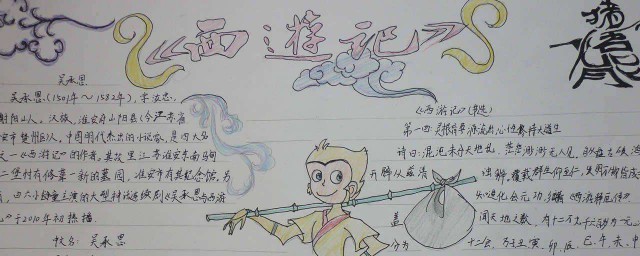 《西游记》
猪吾八戒
吴承恩
吴承恩(1501年～1582年),字汝忠,
射阳山人。汉族,淮安府山阳县(今江苏省
安市楚州区)人。中国明代杰出的小说家,是四大名
之一《西游记》的作者。其故里江苏淮安
二堡村有修葺一新的墓园,淮安市有其纪念馆。
由六小龄童主演的大型神话连续剧《吴承恩与西游
记》于2010年初热播
姓名:吴承恩
《西游记》(节选)
第一回:灵根育孕源流出,心性修持大道生
诗曰:混沌未分天地乱,茫茫渺渺无人见。自从盘古破鸿
开辟从兹清浊辨。覆载群生仰至仁,发明万物皆成
知造化会元功,须看《西游释厄传》
盖闻天地之数,有十二万九千六百为一元
分为十二会,乃子丑寅、卯、辰、巳、午、未、申